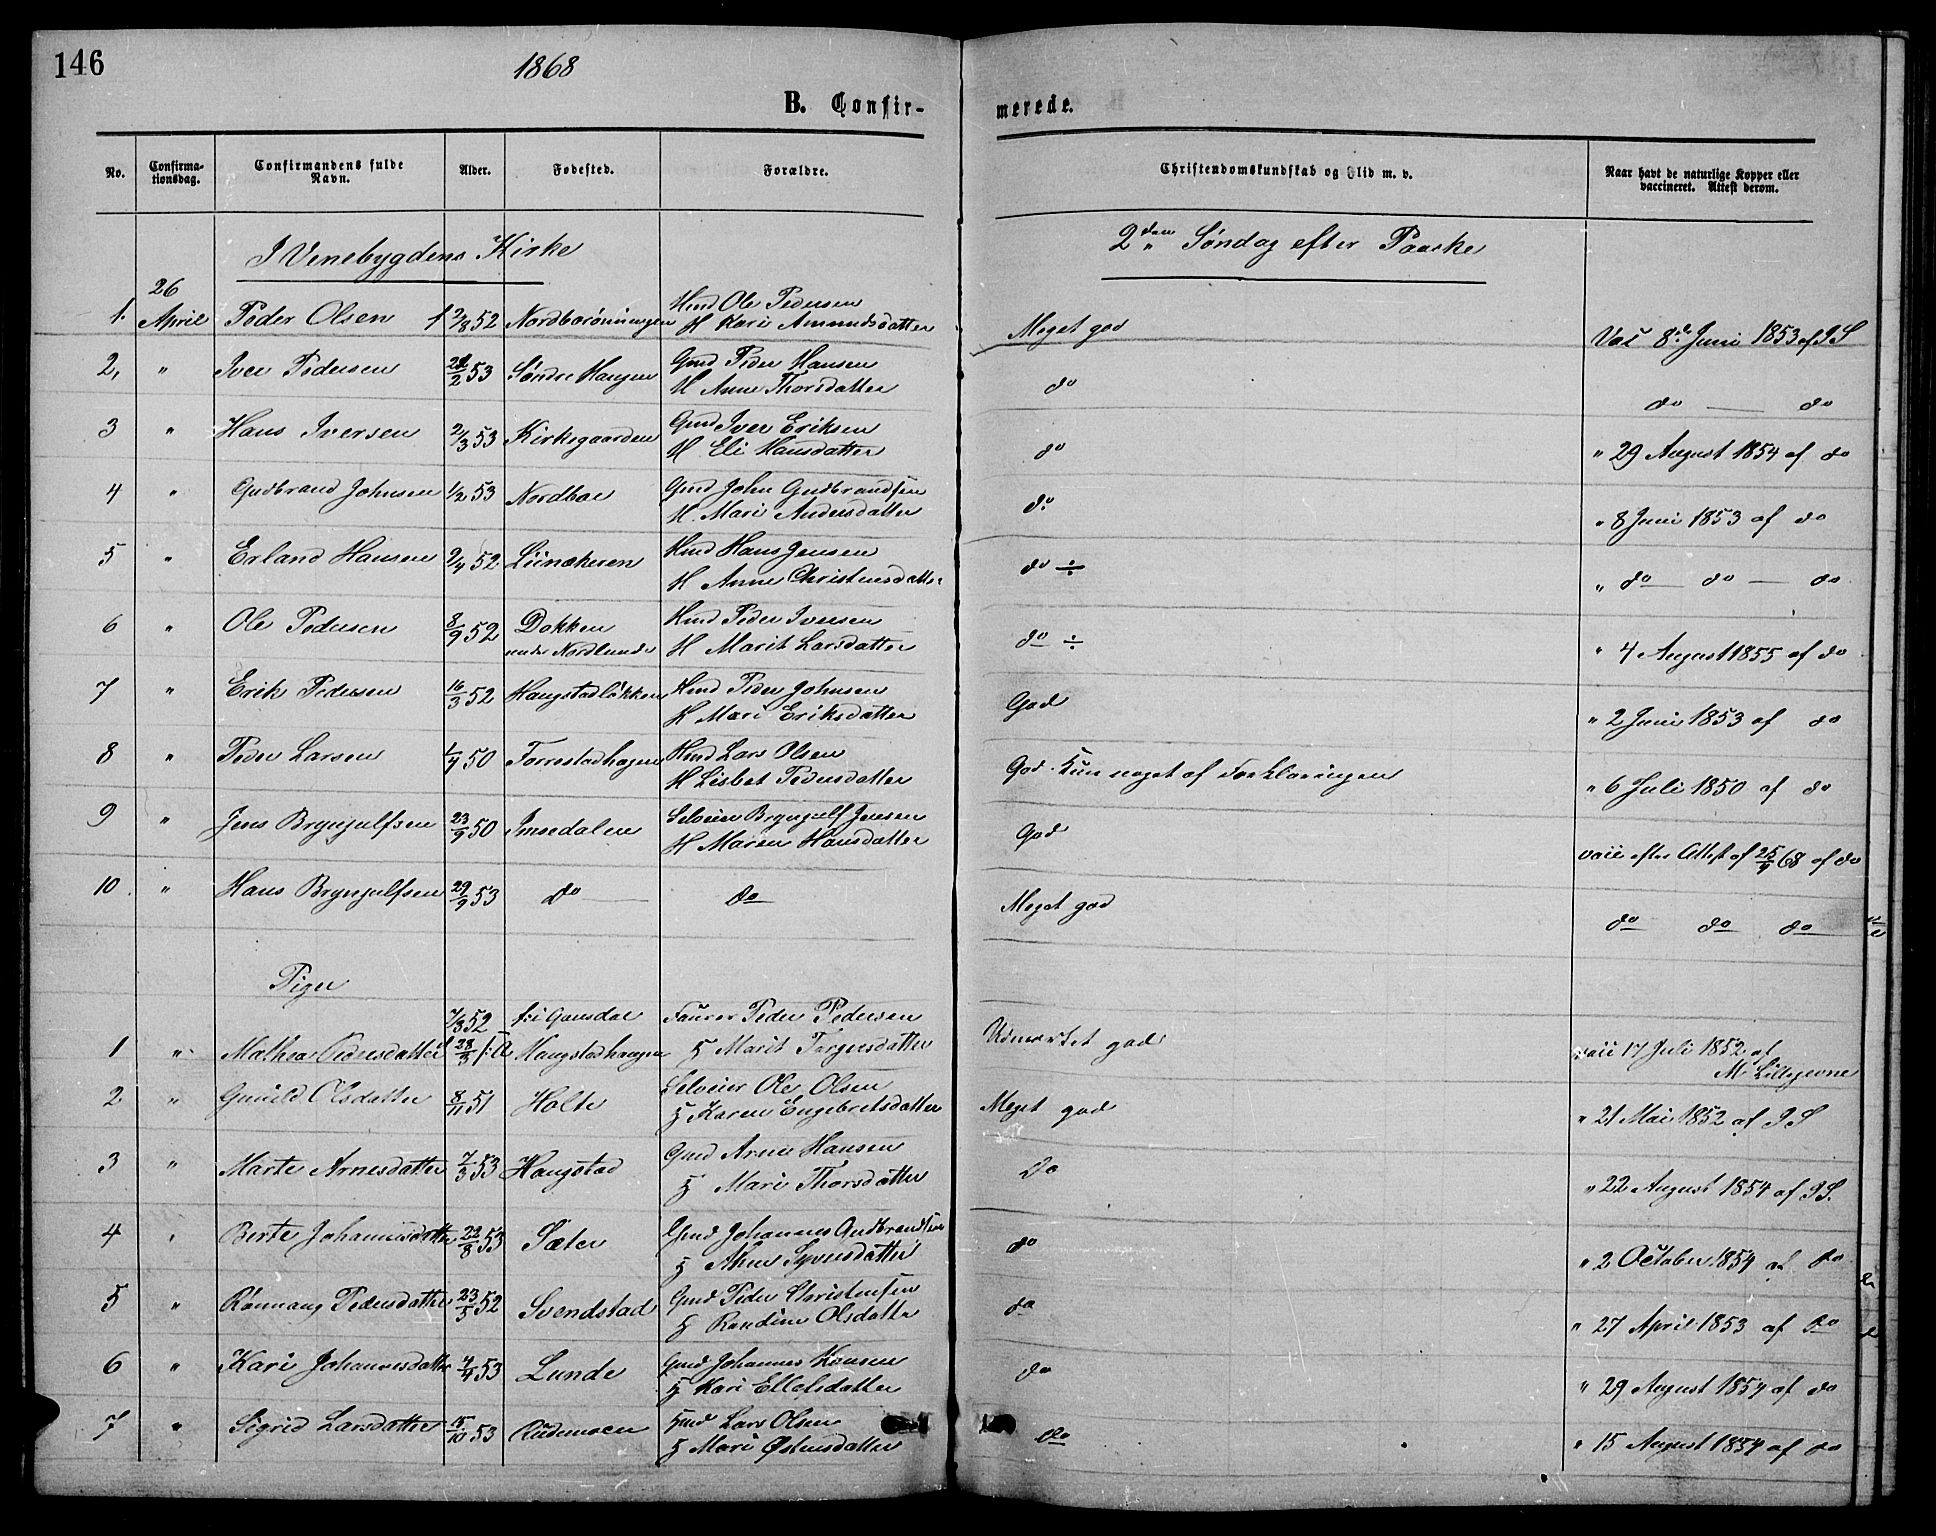 146
1868
B. Confir-
merede.
No.
Confirma-
tionsdag.
Confirmandens fulde
Navn.
Alder.
Fødested.
Forældre.
Christendomskundskab og Flid m. v.
Naar havt de naturlige Kopper eller
vaccineret. Attest derom.
I Venebygdens Kirke
2den Søndag efter Paaske
26
1. April Peder Olsen 2/8 52 Hmd Ole Pedersen
H Kari Amundsdatter
Meget god Vac 8de Juni 1853 af I S
2, " Iver Pedersen 53 Søndre Haugen Gmd Peder Hansen
H Anne Thorsdatter
do do — do
3 " Hans Iversen 2/3 53 Kirkegaarden Gmd Iver Eriksen
H Eli Hansdatter
do " 29 August 1854 af do
4 " Gudbrand Johnsen 1/2 53 Nordboe Gmd John Gudbrandsen
H. Mari Andersdatter
do " 8 Juni 1853 af do
5 " Erland Hansen 2/4 52 Hmd Hans Jensen
H Anne Christensdatter
do ÷ " do — do — do
6 " Ole Pedersen 8/9 52 Dokken Hmd Peder Iversen
under Nordlunde H Marit Larsdatter
do ÷ " 4 August 1855 af do
7 " Erik Pedersen 16/3 52 Haugstadløkken Hmd Peder Johnsen
H Mari Eriksdatter
God " 2 Juni 1853 af do
8 " Peder Larsen 1/4 50 Forrestadhagen Hmd Lars Olsen
H Lisbet Pedersdatter
God. Kun noget af Forklaringen " 6 Juli 1850 af do
9 " Jens Bryngulfsen 23/9 50 Imsedalen Selveier Bryngulf Jensen
H Maren Hansdatter
God efter Attest af 25/4 68 af do
10. " Hans Bryngulfsen 29/9 53 do — do
Meget god do do do
Piger
7/3 52 Peder Pedersen
1 " Mathea Pedersdatter 28/3 Haugstadhaugen H Marit
Udmærket god 17 Juli 1852 af
M
2 " Gunild Olsdatter 8/11 51 Holte Selveier Ole Olsen
H Karen Engebretsdatter
Meget god " 21 Mai 1852 af I S
3 " Marte Arnesdatter 7/3 53 Haugstad Gmd Arne Hansen
H Mari Thorsdatter
do " 22 August 1854 af I S.
4 " Berte Johannesdatter 22/8 53 Sæter Gmd Johannes Gudbrandsen
H Syversdatter
do " 2 October 1854 af do
5 " Rønnaug Pedersdatter 23/5 52 Svendstad Gmd Peder Christensen
H Rondine Olsdatter
do " 27 April 1853 af do
6 " Kari Johannesdatter 4/4 53 Lunde Gmd Johannes Hansen
H Kari
do " 29 August 1854 af do
7 " Sigrid Larsdatter 15/10 53 Rudemoen Hmd Lars Olsen
H Mari Østensdatter
do " 15 August 1854 af do